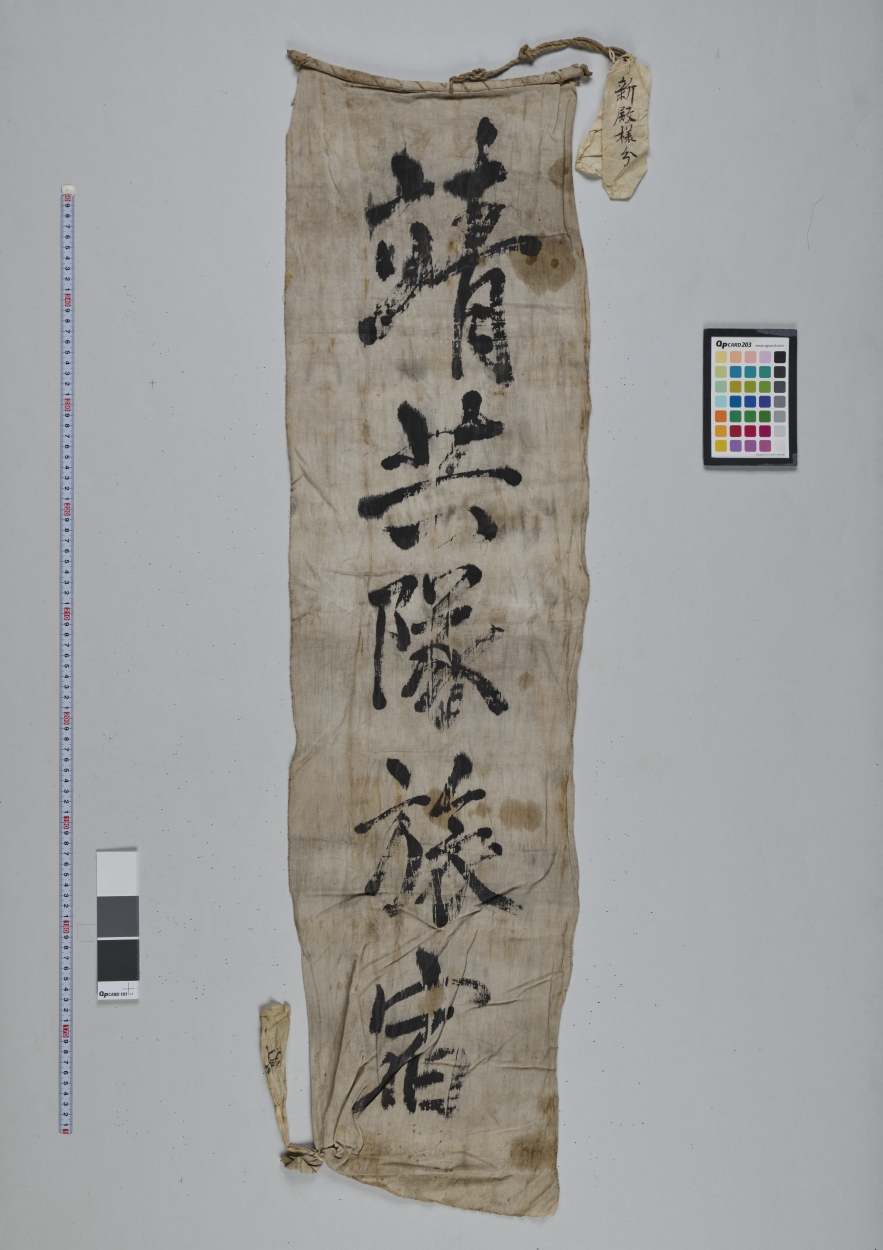 靖共隊旅宿
新殿様分
QpCARD 203
QpCARD 101